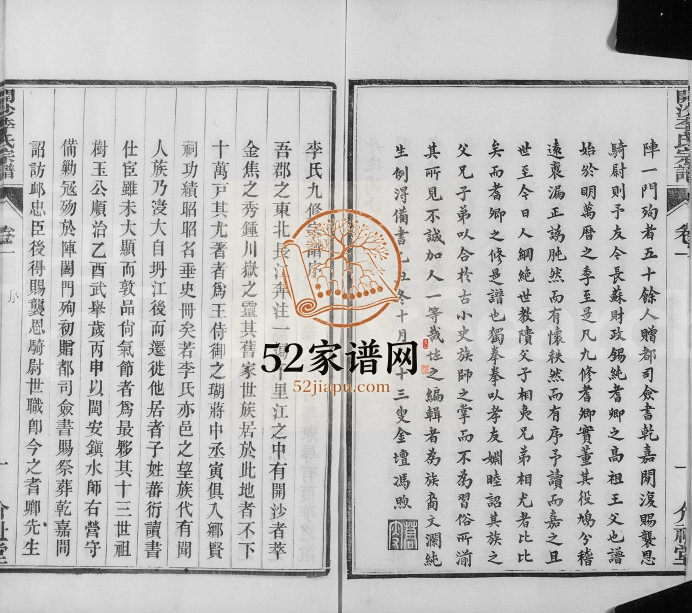 陣一門殉者五十餘人贈都司僉書乾嘉閒復賜襲恩
騎尉則予友今長蘇財政錫純耆卿之高祖王父也譜
始於明萬曆之季至是凡九修耆卿實董其役鳩分稽
遠裒漏正譌肫然而有懷秩然而有序予讀而嘉之且
世至今日人綱絕世教隤父子相夷兄弟相尤者比比
矣而耆卿之修是譜也獨拳拳以孝友婣睦詔其族之
父兄子弟以合於古小史族師之掌而不為習俗所湔
其所見不誠加人一等哉
之編輯者為族裔文瀾純
生例得備書
冬十月
十三叟金壇馮煦
李氏九修宗譜序
吾郡之東北長江奔注一
里江之中有開沙者萃
金焦之秀鍾川嶽之靈其舊家世族居於此地者不下
十萬戸其尤著者爲王侍御之瑚蔣中丞寅俱入鄉賢
祠功績昭昭名垂史冊矣若李氏亦邑之望族代有聞
人族乃浸大自坍江後而遷徙他居者子姓蕃衍讀書
仕宦雖未大顯而敦品尙氣節者爲最夥其十三世祖
樹玉公順治乙酉武舉歲丙申以閩安鎮水師右營守
備勦冦殉於陣闔門殉初贈都司僉書賜祭葬乾嘉間
詔訪邺忠臣後得賜襲恩騎尉世職卽今之耆卿先生
開沙李氏宗譜
卷一
序
一
開沙李氏宗譜
卷一
一
52家谱网
52jiapu.com